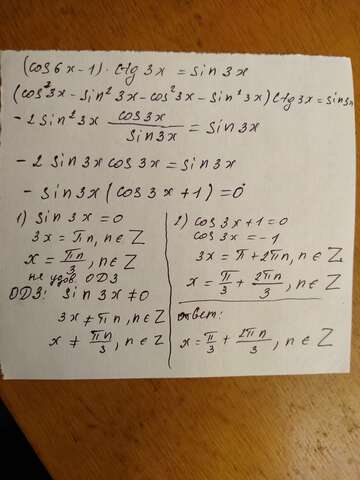 (cos6x-1)·ctg3x = sin3x
(cos²3x - sin²3x - cos²3x - sin²3x) ctg3x = sin3x
-2sin²3x cos3x/sin3x = sin3x
-2 sin3x cos3x = sin3x
- sin3x (cos3x+1)=0
1) sin3x = 0
3x = πn, n∈Z
x = πn/3, n∈Z
не удов. ОДЗ
ОДЗ: sin3x≠0
3x ≠ πn, n∈Z
x ≠ πn/3, n∈Z
2) cos3x+1=0
cos3x = -1
3x = π+2πn, n∈Z
x = π/3 + 2πn/3, n∈Z
ответ:
x = π/3 + 2πn/3, n∈Z